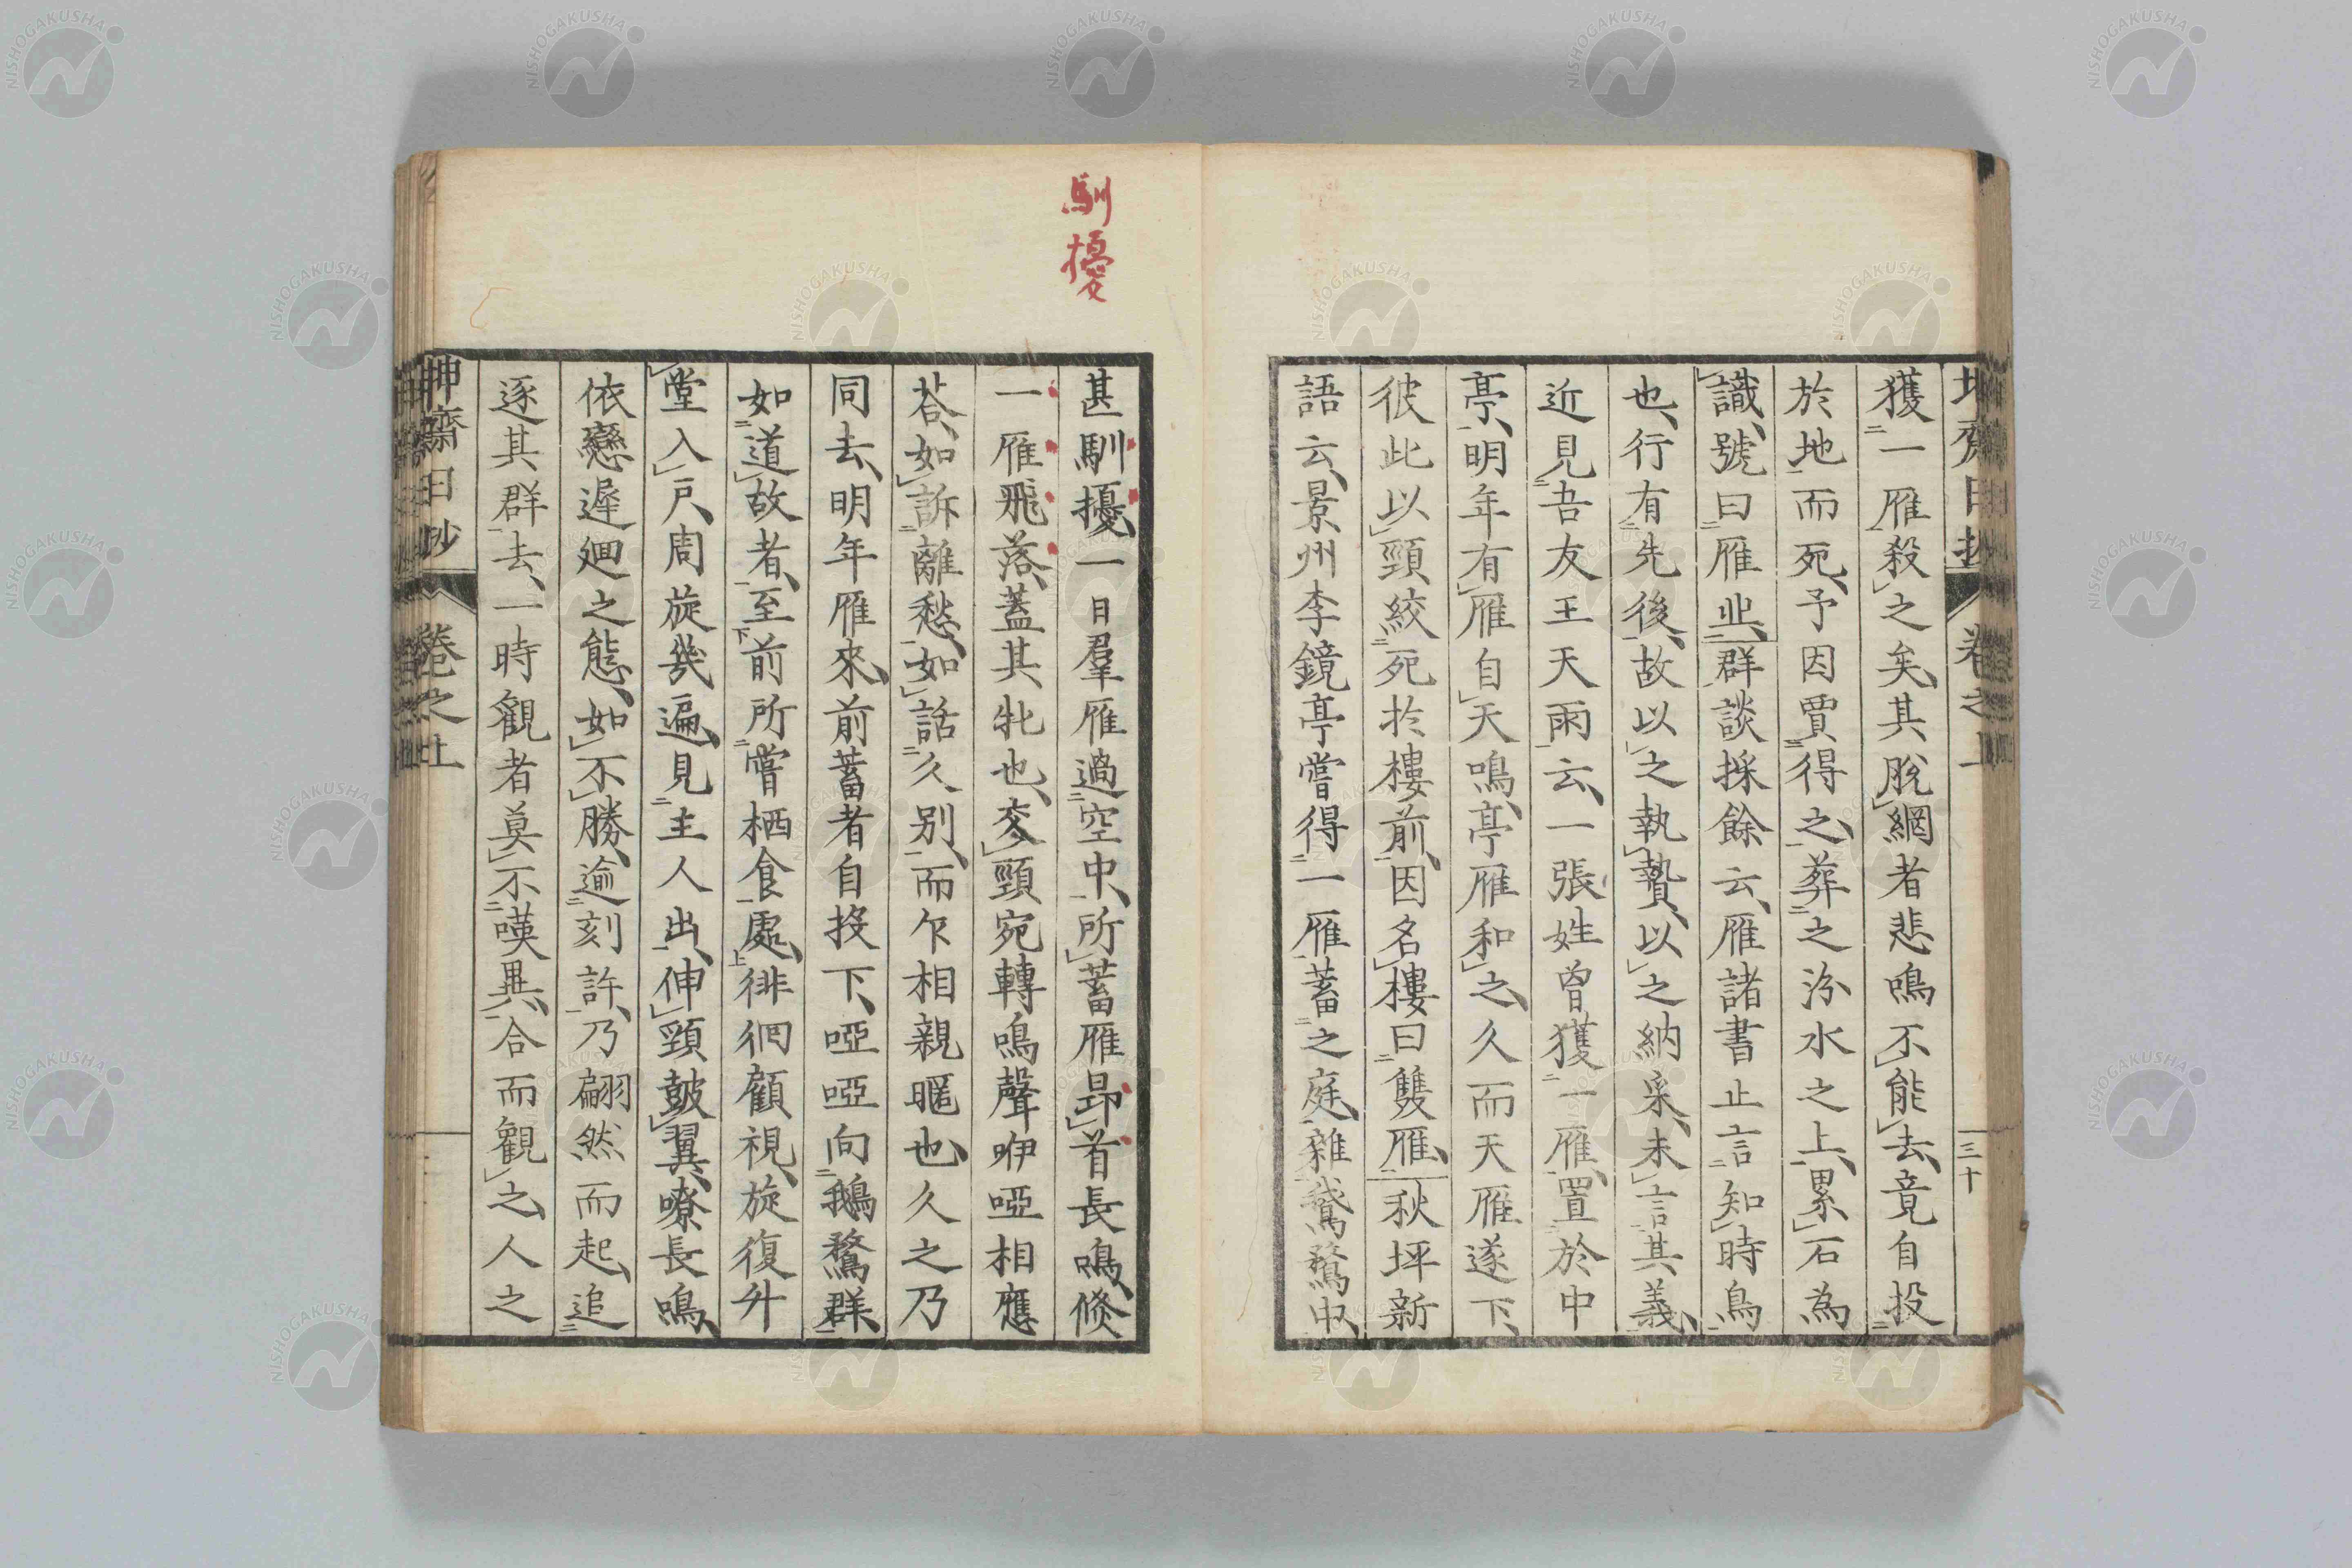 獲一雁殺之矣、其脫網者悲鳴不能去、竟自投
於地而死、予因買得之、葬之汾水之上、累石為
識、號曰雁丘、群談採餘云、雁諸書止言知時鳥
也、行有先後、故以之執贄、以之納采、未言其義、
近見吾友王天雨云、一張姓曾獲一雁、置於中
亭、明年有雁自天鳴、亭雁和之、久而天雁遂下、
彼此以頸絞死於樓前、因名樓曰雙雁、秋坪新
語云、景州李鏡亭嘗得一雁蓄之庭、雜鵞鶩中、
馴擾
甚馴擾、一日羣雁過空中、所蓄雁昂首長鳴、倐
一雁飛落、蓋其牝也、交頸宛轉鳴聲咿啞相應
荅、如訴離愁、如話久別、而乍相親暱也、久之乃
同去、明年雁來、前蓄者自投下、啞啞向鵝鶩群、
如道故者、至前所嘗栖食處、徘徊顧視、旋復升
堂入戶、周旋幾遍、見主人出、伸頸鼓翼、嘹長鳴、
依戀遲廻之態、如不勝、逾刻許、乃翩然而起、追
逐其群去、一時觀者莫不嘆異、合而觀之、人之
卷之上
三十
NISHOGAKUSHA